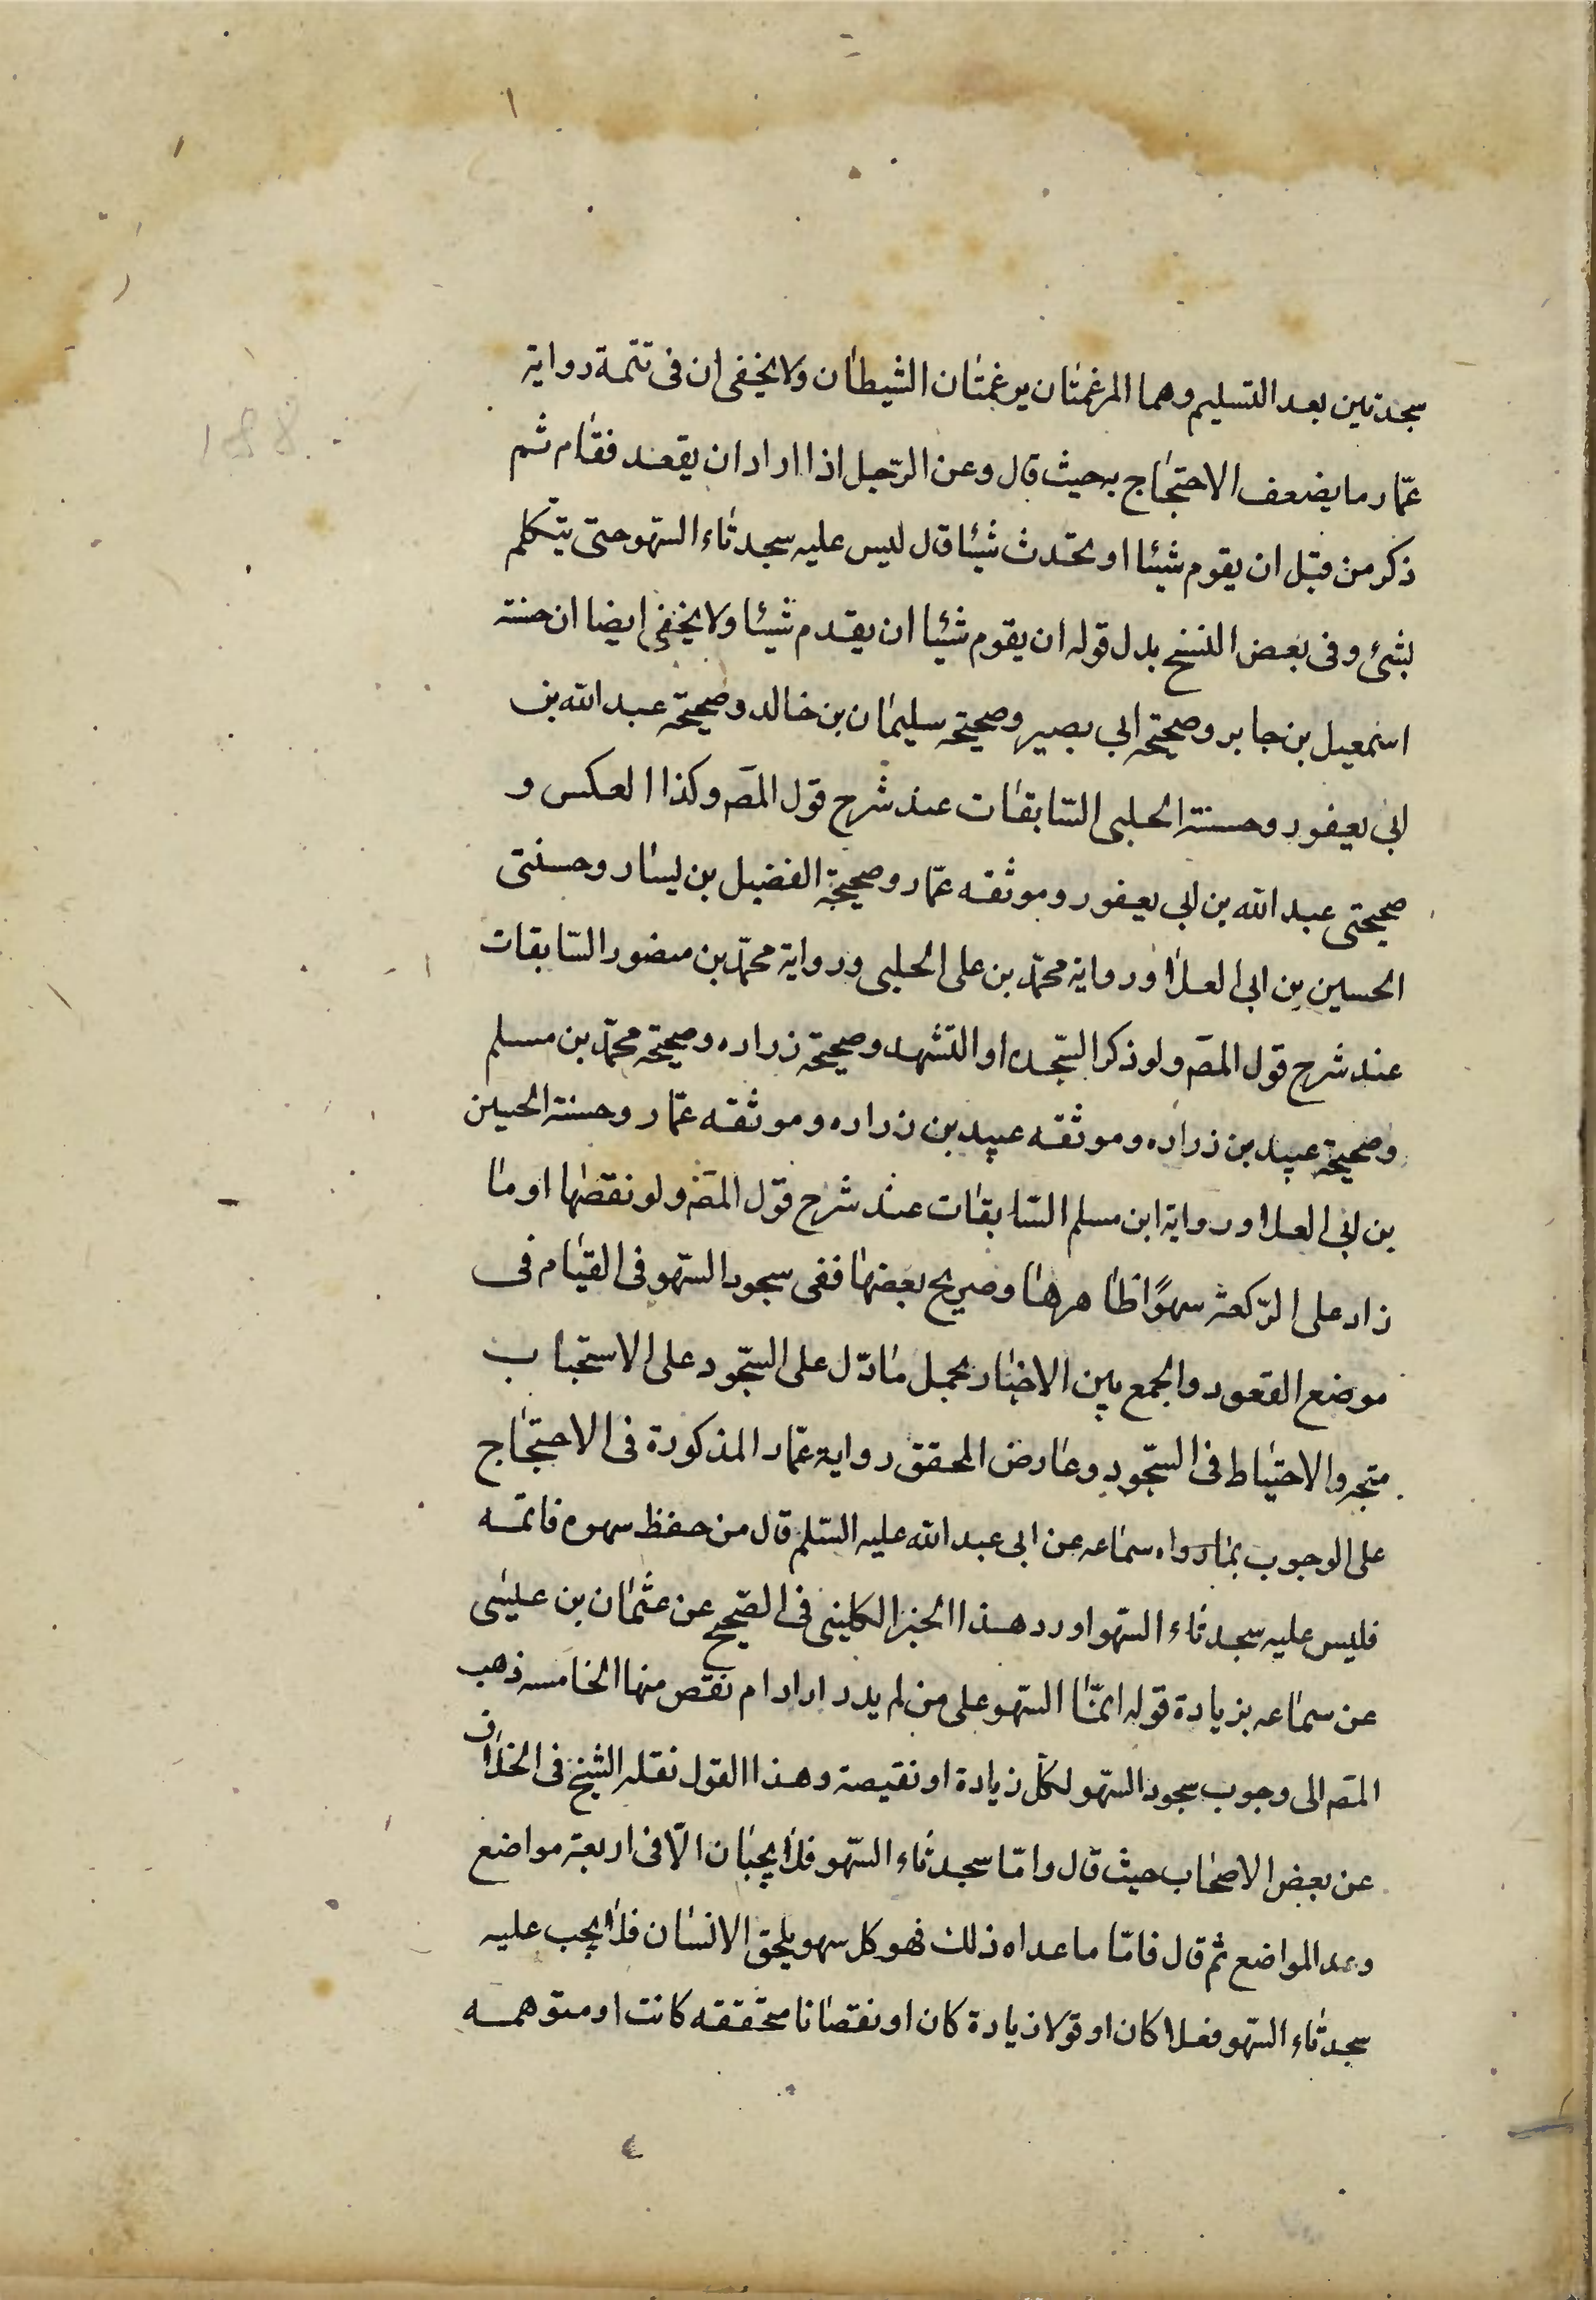 سجدتين بعد التسليم وهما المرغمتان يرغمتان الشيطان ولا يخفى ان فى تتمة رواية
عمّار ما يضعف الاحتجاج به حيث قال وعن الرّجل اذا اراد ان يقعد فقام ثم
ذكر من قبل ان يقوم شيئا او يحدث شيئا قال ليس عليه سجدتاء السّهو حتى يتكلم
بشئ وفى بعض النسخ بدل قوله ان يقوم شيئا ان يقدم شيئا ولا يخفى ايضا ان حسنة
اسمعيل بن جابر وصحيحة ابى بصير وصحيحة سليمان بن خالد وصحيحة عبد الله بن
ابى يعفور وحسنة الحلبى السّابقات عند شرح قول المصَ وكذا العكس و
صحيحتى عبد الله بن ابى يعفور وموثقه عمّار وصحيحة الفضيل بن يسار وحسنتى
الحسين بن ابى العلا ورواية محمّد بن على الحلبى ورواية محمّد بن منصور السّابقات
عند شرح قول المصَ ولو ذكر السّجده او التشهد وصحيحة زراره وصحيحة محمّد بن مسلم
وصحيحة عبيد بن زراره وموثقه عبيد بن زراره وموثقه عمّار وحسنة الحسين
بن ابى العلا ورواية ابن مسلم السّابقات عند شرح قول المصَ ولو نقصها او ما
زاد على الرّكعة سهوًا ظاهرها وصريح بعضها ففى سجود السّهو فى القيام فى
موضع القعود والجمع بين الاخبار بحمل ما دّل على السّجود على الاستحباب
متجه والاحتياط فى السّجود وعارض المحقق رواية عمّار المذكورة فى الاحتجاج
على الوجوب بما رواه سماعه عن ابى عبد الله عليه السّلم قال من حفظ سهوه فاتمّه
فليس عليه سجدتاء السّهو اورد هذا الخبر الكلينى فى الصّحيح عن عثمان بن عليسى
عن سماعه بزيادة قوله انمّا السّهو على من لم يدر ازاد ام نقص منها الخامسه ذهب
المصَ الى وجوب سجود السّهو لكلّ زيادة او نقيصة وهذا القول نقله الشيخ فى الخلاف
عن بعض الاصحاب حيث قال وامّا سجدتاء السّهو فلا يجبان الّا فى اربعة مواضع
وعد المواضع ثم قال فامّا ما عداه ذلك فهو كل سهو يلحق الانسان فلا يجب عليه
سجدتاء السّهو فعلا كان او قولا زيادة كان او نقصانا محقّقه كانت او متوهمه